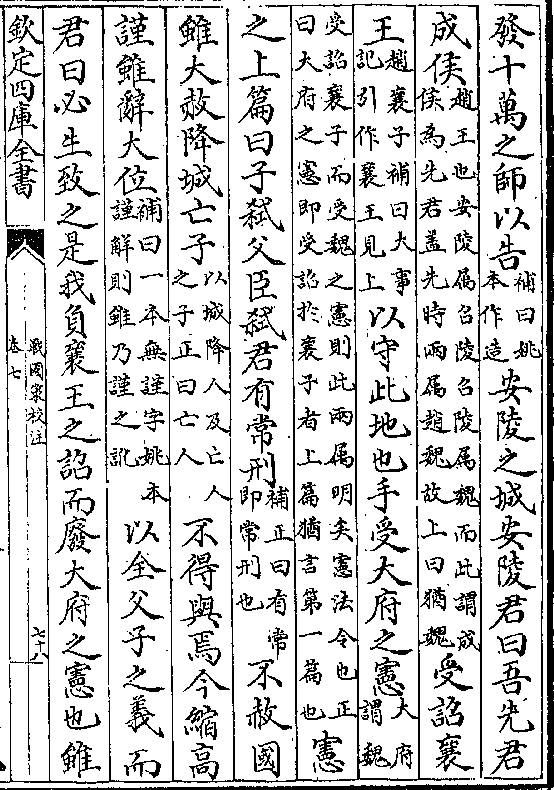 發十萬之師以告補曰姚本作造安陵之城安陵君曰吾先君
成侯趙王也安陵属召陵召陵属魏而此謂成侯為先君葢先時兩属趙魏故上曰猶魏受詔襄
王趙襄子補曰大事記引作襄王見上以守此地也手受大府之憲大府謂魏
受詔襄子而受魏之憲則此兩属明矣憲法令也正曰大府之憲即受詔於襄子者上篇猶言第一篇也憲
之上篇曰子弑父臣弑君有常刑補正曰有常即常刑也不赦國
雖大赦降城亡子以城降人及亡人之子正曰亡人不得與焉今縮高
謹雖辭大位補曰一本無謹字姚本謹解則雖乃謹之訛以全父子之義而
君曰必生致之是我負襄王之詔而廢大府之憲也雖
欽定四庫全書
戰國策校注
卷七
七十八